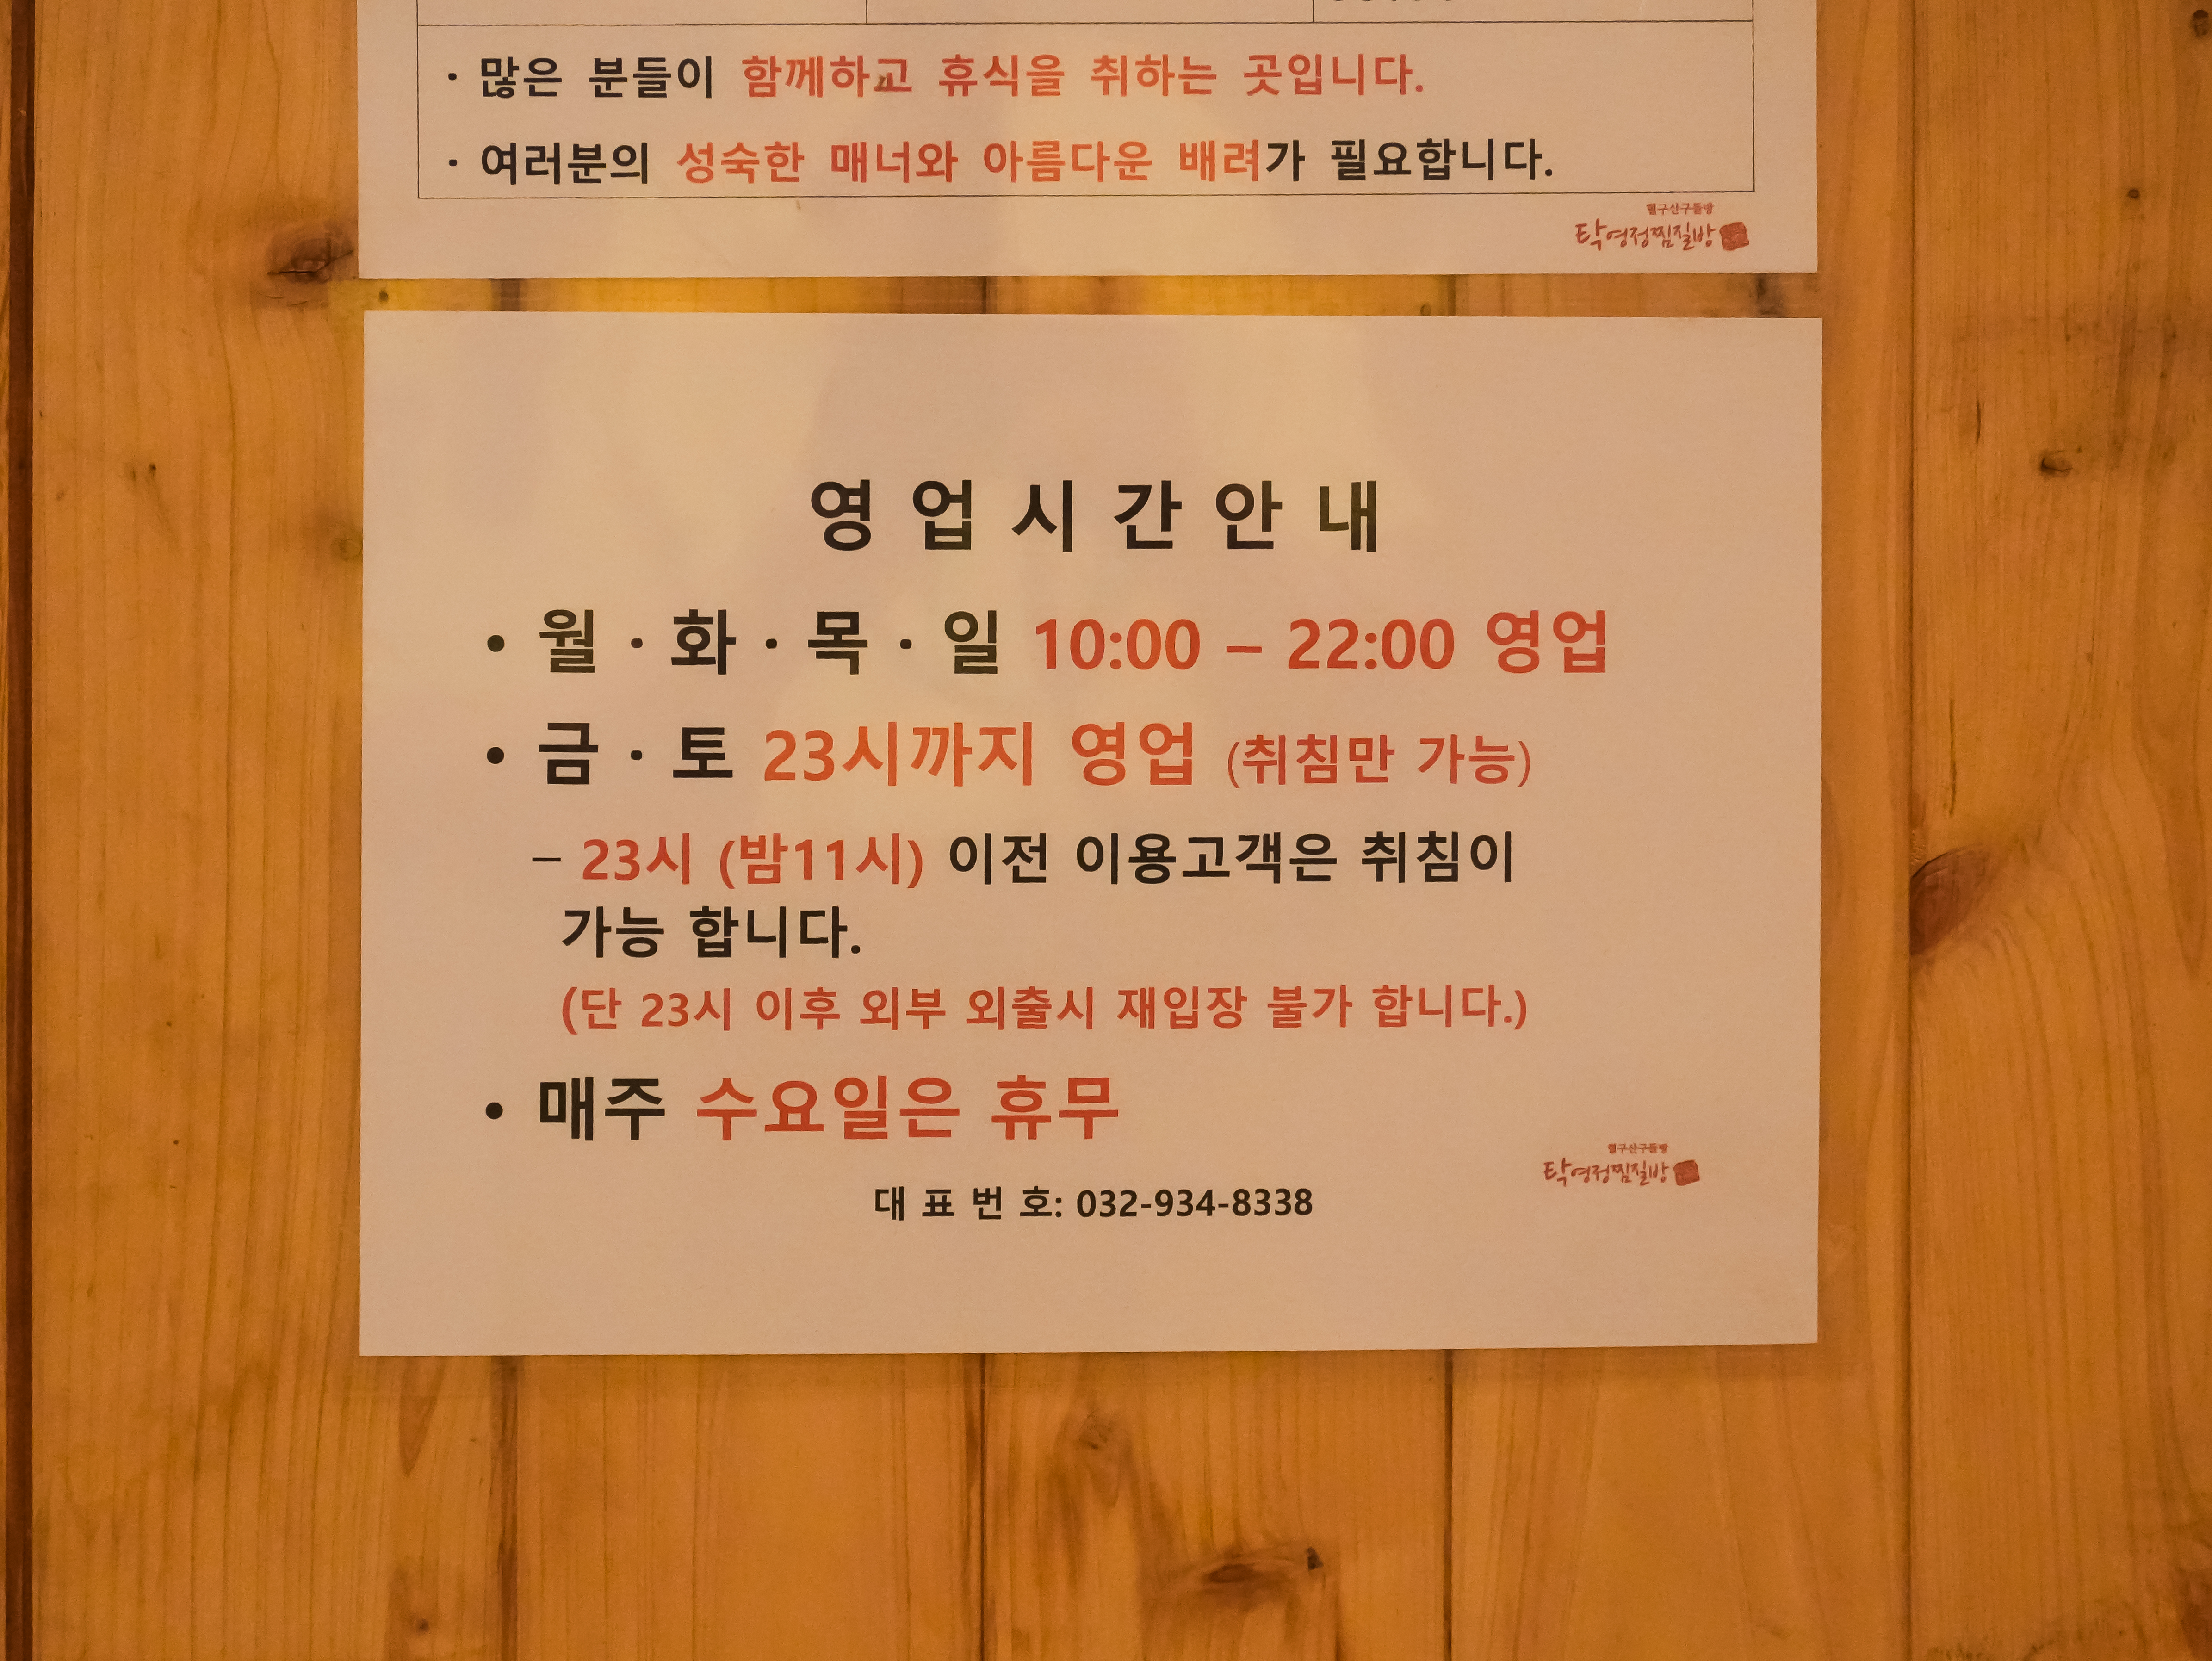 · 많은 분들이 함께하고 휴식을 취하는 곳입니다.
· 여러분의 성숙한 매너와 아름다운 배려가 필요합니다.
탁영정찜질방
영업시간안내
• 월 · 화 · 목 · 일 10:00 – 22:00 영업
• 금 · 토 23시까지 영업 (취침만 가능)
– 23시 (밤11시) 이전 이용고객은 취침이
가능 합니다.
(단 23시 이후 외부 외출시 재입장 불가 합니다.)
• 매주 수요일은 휴무
탁영정찜질방
대 표 번 호: 032-934-8338